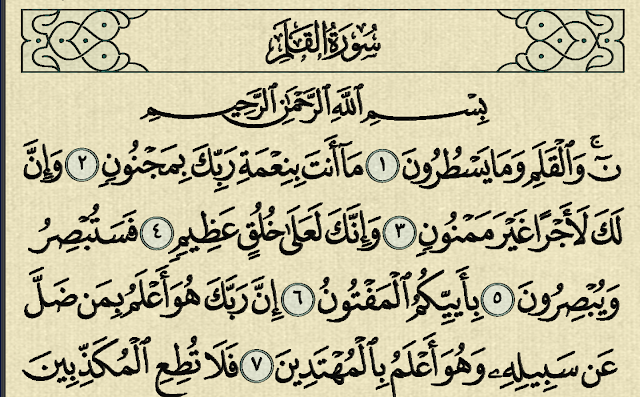 سُورَةُ القَلَمِ
بِسْمِ ٱللَّهِ ٱلرَّحْمَٰنِ ٱلرَّحِيمِ
نٓۚ وَٱلْقَلَمِ وَمَا يَسْطُرُونَ ١ مَآ أَنتَ بِنِعْمَةِ رَبِّكَ بِمَجْنُونٍ ٢ وَإِنَّ
لَكَ لَأَجْرًا غَيْرَ مَمْنُونٍ ٣ وَإِنَّكَ لَعَلَىٰ خُلُقٍ عَظِيمٍ ٤ فَسَتُبْصِرُ
وَيُبْصِرُونَ ٥ بِأَييِّكُمُ ٱلْمَفْتُونُ ٦ إِنَّ رَبَّكَ هُوَ أَعْلَمُ بِمَن ضَلَّ
عَن سَبِيلِهِۦ وَهُوَ أَعْلَمُ بِٱلْمُهْتَدِينَ ٧ فَلَا تُطِعِ ٱلْمُكَذِّبِينَ